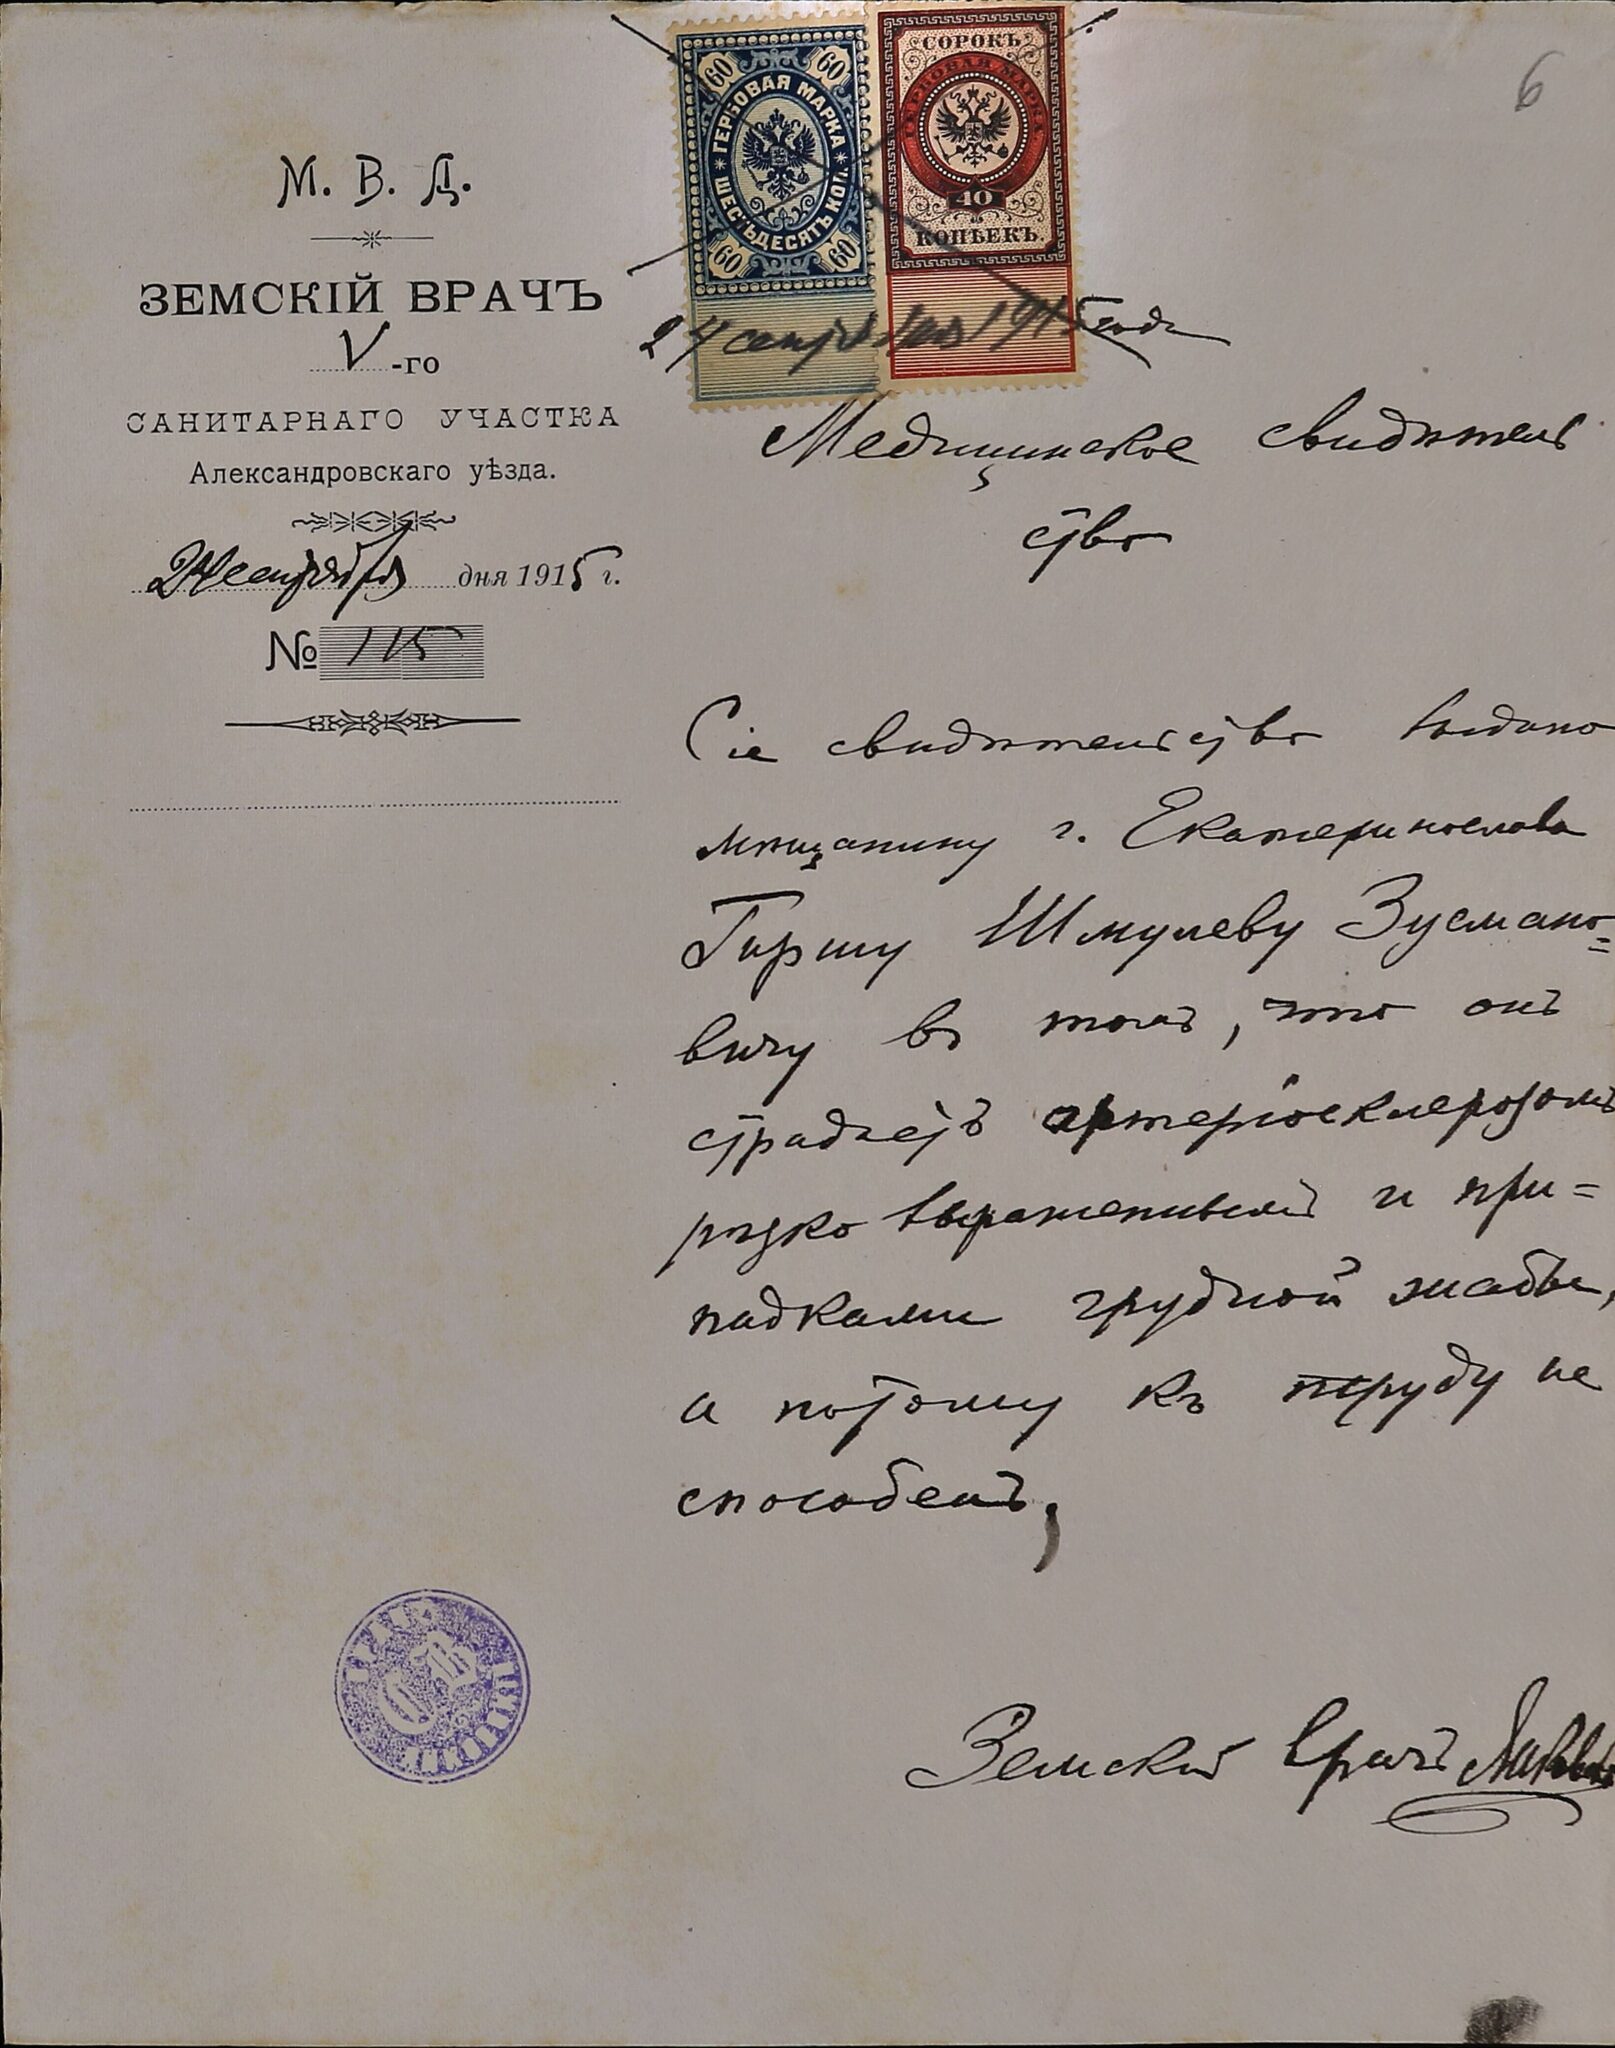 6
М. В. Д.
ЗЕМСКІЙ ВРАЧЪ
V-го
САНИТАРНАГО УЧАСТКА
Александровскаго уѣзда.
24 сентября дня 1915 г.
№ 115
60 60
ГЕРБОВАЯ МАРКА
ШЕСТЬДЕСЯТЪ КОП.
60 60
СОРОКЪ
ГЕРБОВАЯ МАРКА
40
КОПѢЕКЪ
24 сентября 1915 года
Медицинское свидѣтель
ство
Сіе свидѣтельство выдано
мѣщанину г. Екатеринослава
Гиршу Шмулеву Зусмано=
вичу въ томъ, что онъ
страдаетъ артеріосклерозомъ
рѣзко выраженнымъ и при=
падками грудной жабы,
а потому къ труду не
способенъ,
Земскій врачъ